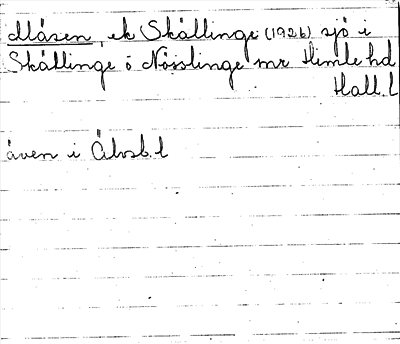 Måsen, ek Skällinge (1926) sjö i
Skällinge o Nösslinge snr Himle hd
Hall. l
även i Älvsb. l